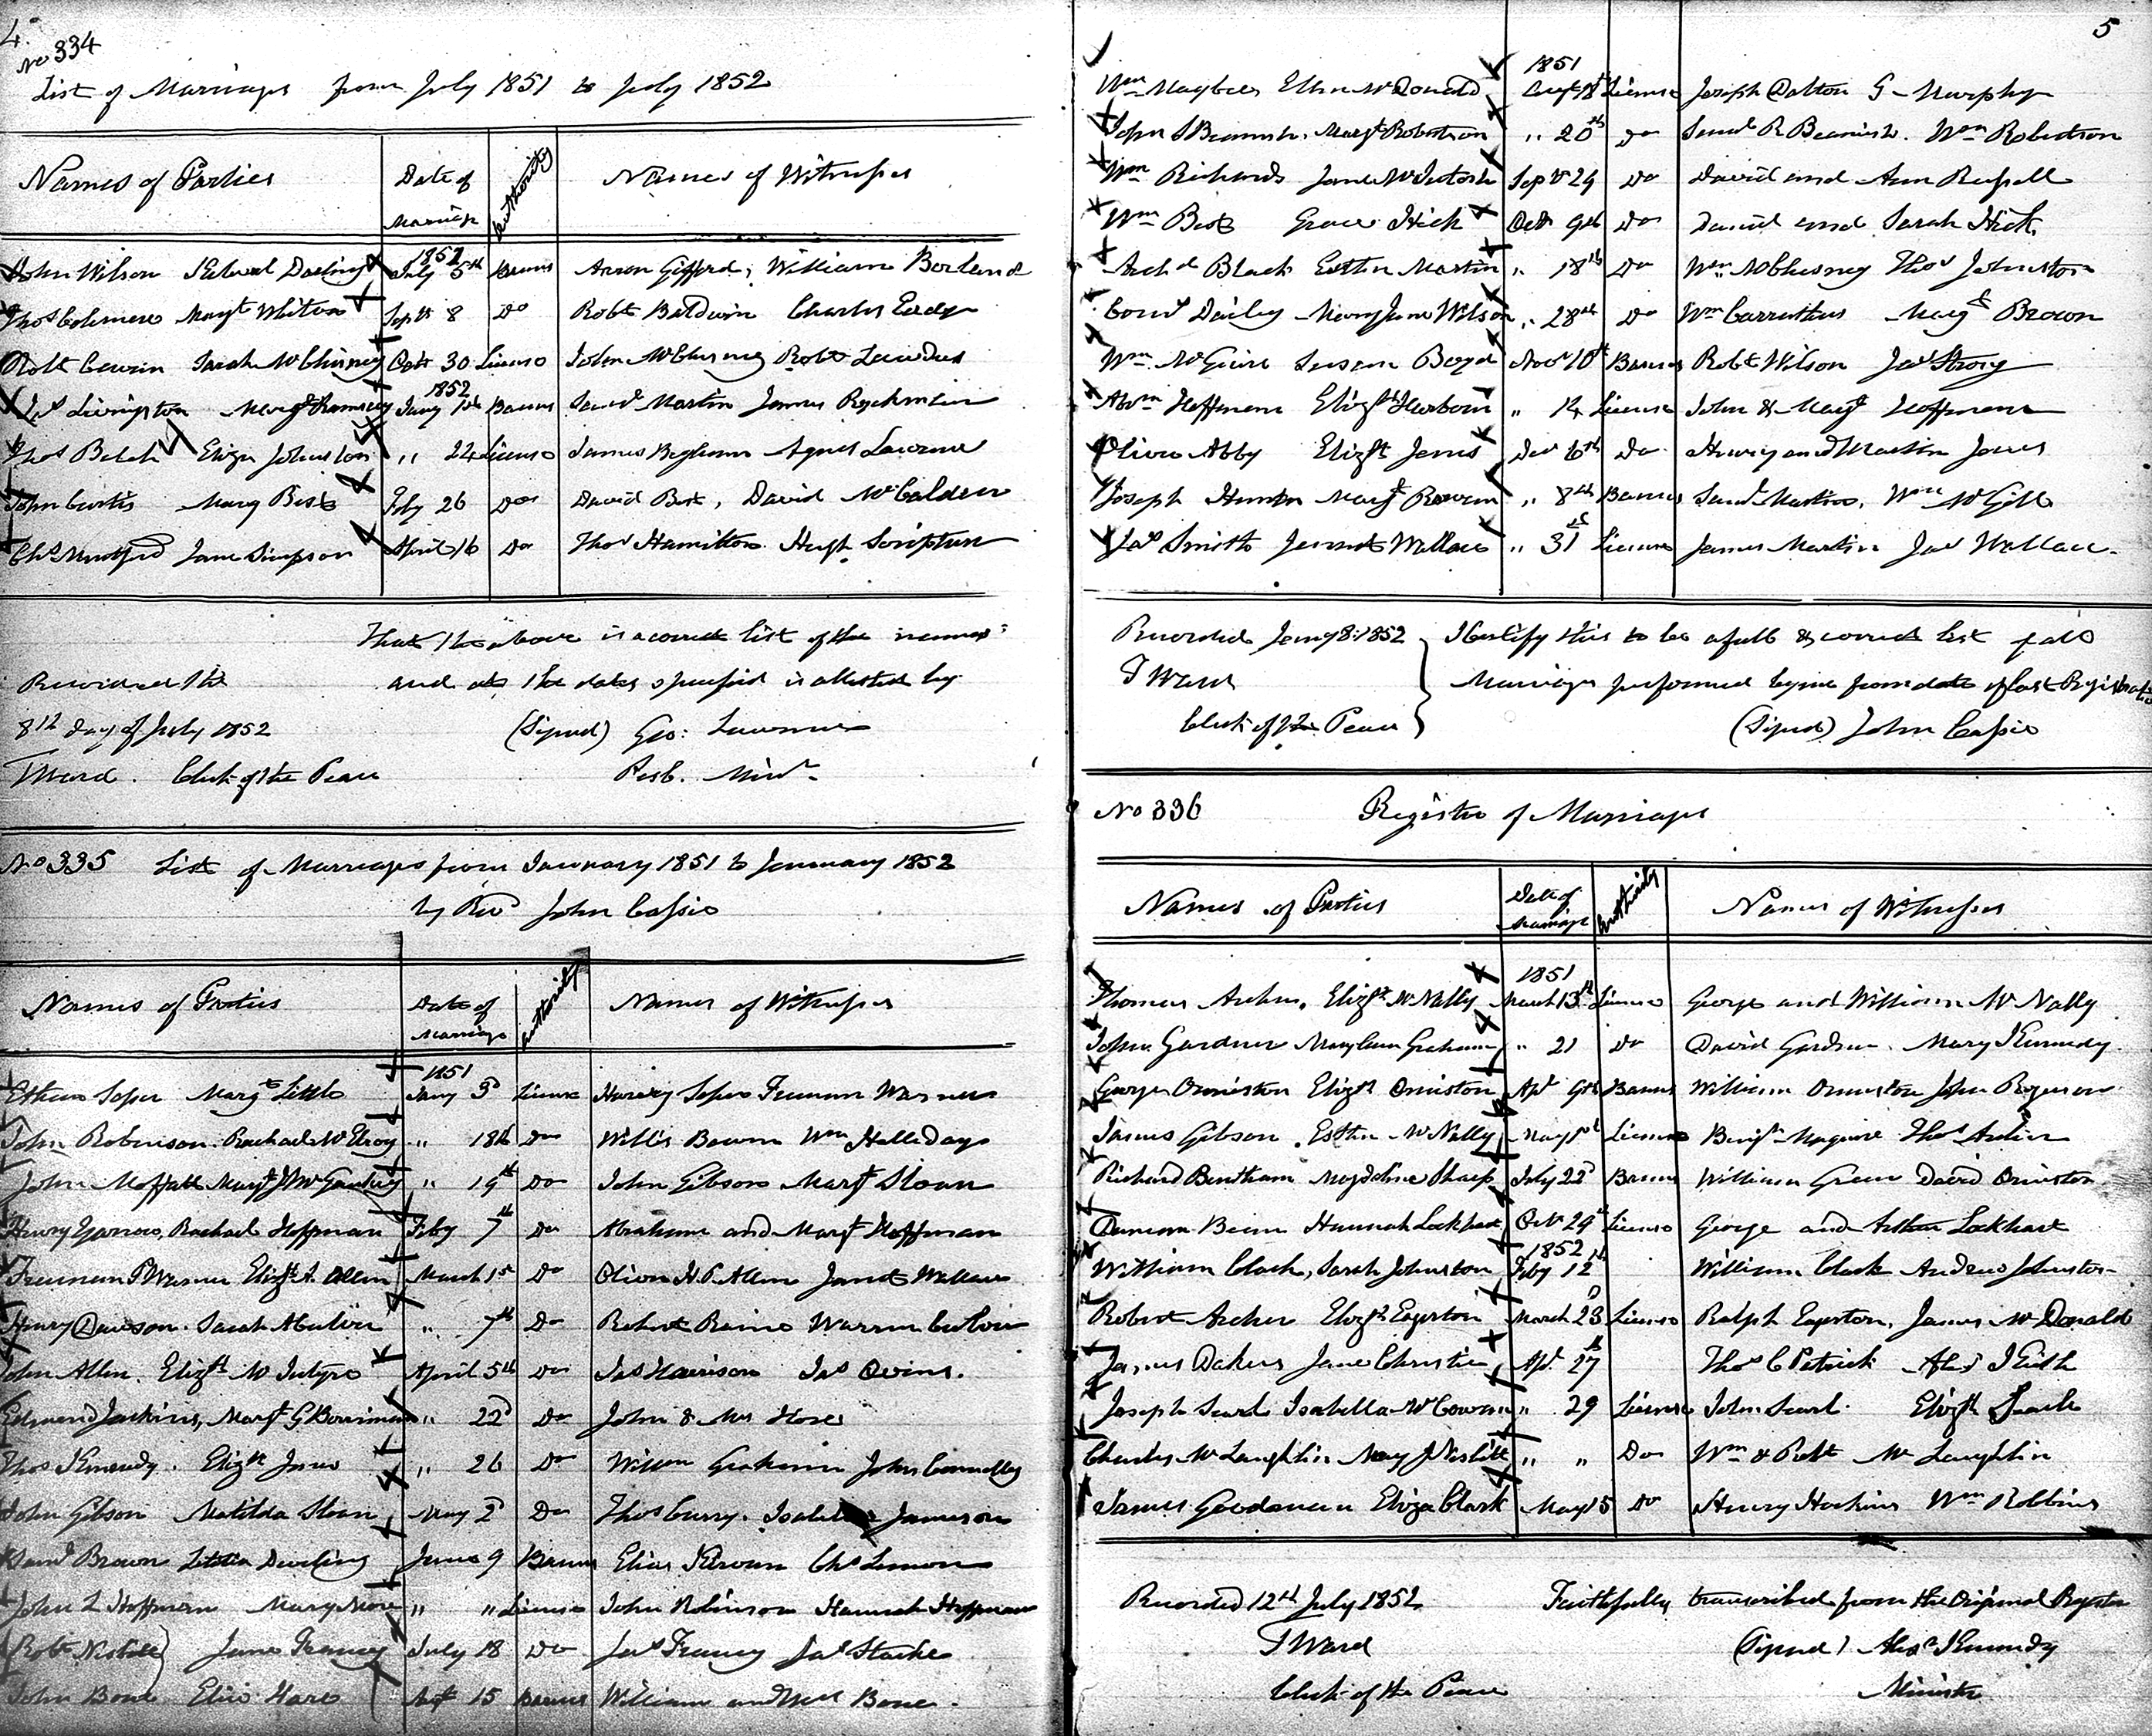 4.
No 334
List of Marriages from July 1851 to July 1852
Names of Parties Date of Marriage Authority Names of Witnesses
1852
John Wilson Darling July 5th Banns Aaron Gifford, William Borland
Thos Margt Whiton Sept 8 Do Robt Baldwin Charles
Robt Sarah McChesney Octr 30 License John McChesney Robt
1852
Jas Livingston Margt Ramsey Jany 1st Banns Saml Martin James Ryckman
Thos Eliza Johnston " 22 License James Bigham Agnes Lawrence
John Curtis Mary Best Feby 26 Do David Best, David McCalden
Chs Jane Simpson April 16 Do Thos Hamilton Hugh Scripture
That the above is a correct list of the names
and at the dates specified is attested by
(Signed) Geo: Lawrence
Presb. Minr
Received the
8th day of July 1852
T Ward. Clerk of the Peace
No 335 List of Marriages from January 1851 to January 1852
by Revd John Cassie
Names of Parties Date of Marriage Authority Names of Witnesses
1851
Ethan Soper Margt Little Jany 3d License Harvey Soper Freeman Warner
John Robinson Rachael McElroy " 18th Do Willis Bowen Wm Halliday
John Moffatt Margt J " 19th Do John Gibson Margt Sloan
Henry Rachael Hoffman Feby 7th Do Abraham and Margt Hoffman
Freeman P Warner Elizth A. Allin March 1st Do Oliver H. P. Allin Janet Wallace
Henry Davison Sarah M " 7th Do Robert Raine Warren
John Allin. Elizth McIntyre April 5th Do Jas Harrison Jas
Edmund Jackins, Margt G " 22d Do John & Mrs
Thos Kennedy. Elizth " 26 Do Wilson Graham John Connelly
John Gibson Matilda Sloan May 2d Do Thos Curry. Isabella Jameson
Saml Brown Letitia Dowling June 9 Banns Elias Kirvan Chs Lemon
John L Hoffman Mary " " License John Robinson Hannah Hoffman
Robt Nesbitt Jane Francy July 18 Do Jas Francy Jas Starke
John Bone Hare Augt 15 Banns William and Bone.
5
1851
Wm Maybee Ellen McDonald Augt License Joseph Dalton G Murphy
John S Beamish, Margt Robertson " 20th Do Saml R Beamish. Wm Robertson
Wm Richards Jane McIntosh Septr 24 Do David and Ann Russell
Wm Best Grace Hick Octr 9th Do Daniel and Sarah Hick
Archd Black Esther Martin " 18th Do Wm McChesney Thos Johnston
Dailey Mary Jane Wilson " 28th Do Wm Carruthers Margt Brown
Wm McGuire Susan Boyd Novr 10th Banns Robt Wilson Jas Strong
Abrm Hoffman Elizth " 14 License John & Margt Hoffman
Oliver Abby Elizth Jones Decr 6th Do Henry and Martin Jones
Joseph Hunter Margt " 8th Banns Saml Martin, Wm McGill
Jas Smith Jennet Wallace " 31st License James Martin Jas Wallace.
Recorded Jany 8: 1852 I Certify this to be a full & correct list of all
T Ward Marriages performed by me from date of last Registration
Clerk of the Peace (Signed) John Cassie
No 336 Register of Marriages
Names of Parties Date of Marriage Authority Names of Witnesses
1851
Thomas Archer, Elizth McNally March 13th License George and William McNally
John Gardner Mary Ann Graham " 21 Do David Gardner. Mary Kennedy
George Ormiston Elizth Ormiston Apl 9th Banns William Ormiston John Rogerson
James Gibson, Esther McNally May 1st License Benjn Maguire Thos Archer
Richard Bentham Magdeline Sharp July 22d Banns William Green David Ormiston
Duncan Hannah Lockhart Octr 24th License George and Arthur Lockhart
1852
William Clark, Sarah Johnston Feby 12th William Clark Andrew Johnston
Robert Archer Elizth Egerton March 23d License Ralph Egerton, James McDonald
James Dakers Jane Christie Apl 27th Thos C Patrick Alexr Keith
Joseph Searl Isabella McCowan " 29 License John Searl Elizth Searle
Charles McLaughlin Mary J Nesbitt " " Do Wm & Robt McLaughlin
James Goodman Eliza Clark May 15 Do Henry Hoskins Wm Robbins
Recorded 12th July 1852 Faithfully transcribed from the Original Register
T Ward (Signed) Alexr Kennedy
Clerk of the Peace Minister